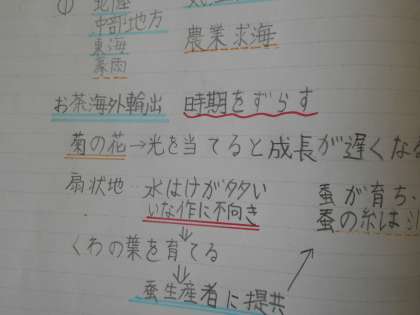 ① 北陸
中部地方
東海 農業 求海
豪雨
お茶海外輸出 時期をずらす
菊の花→光を当てると成長が遅くなる
扇状地… 水はけがタタい 蚕が育ち、
いな作に不向き 蚕の糸は
⇓
くわの葉を育てる
⇓
蚕生産者に提供